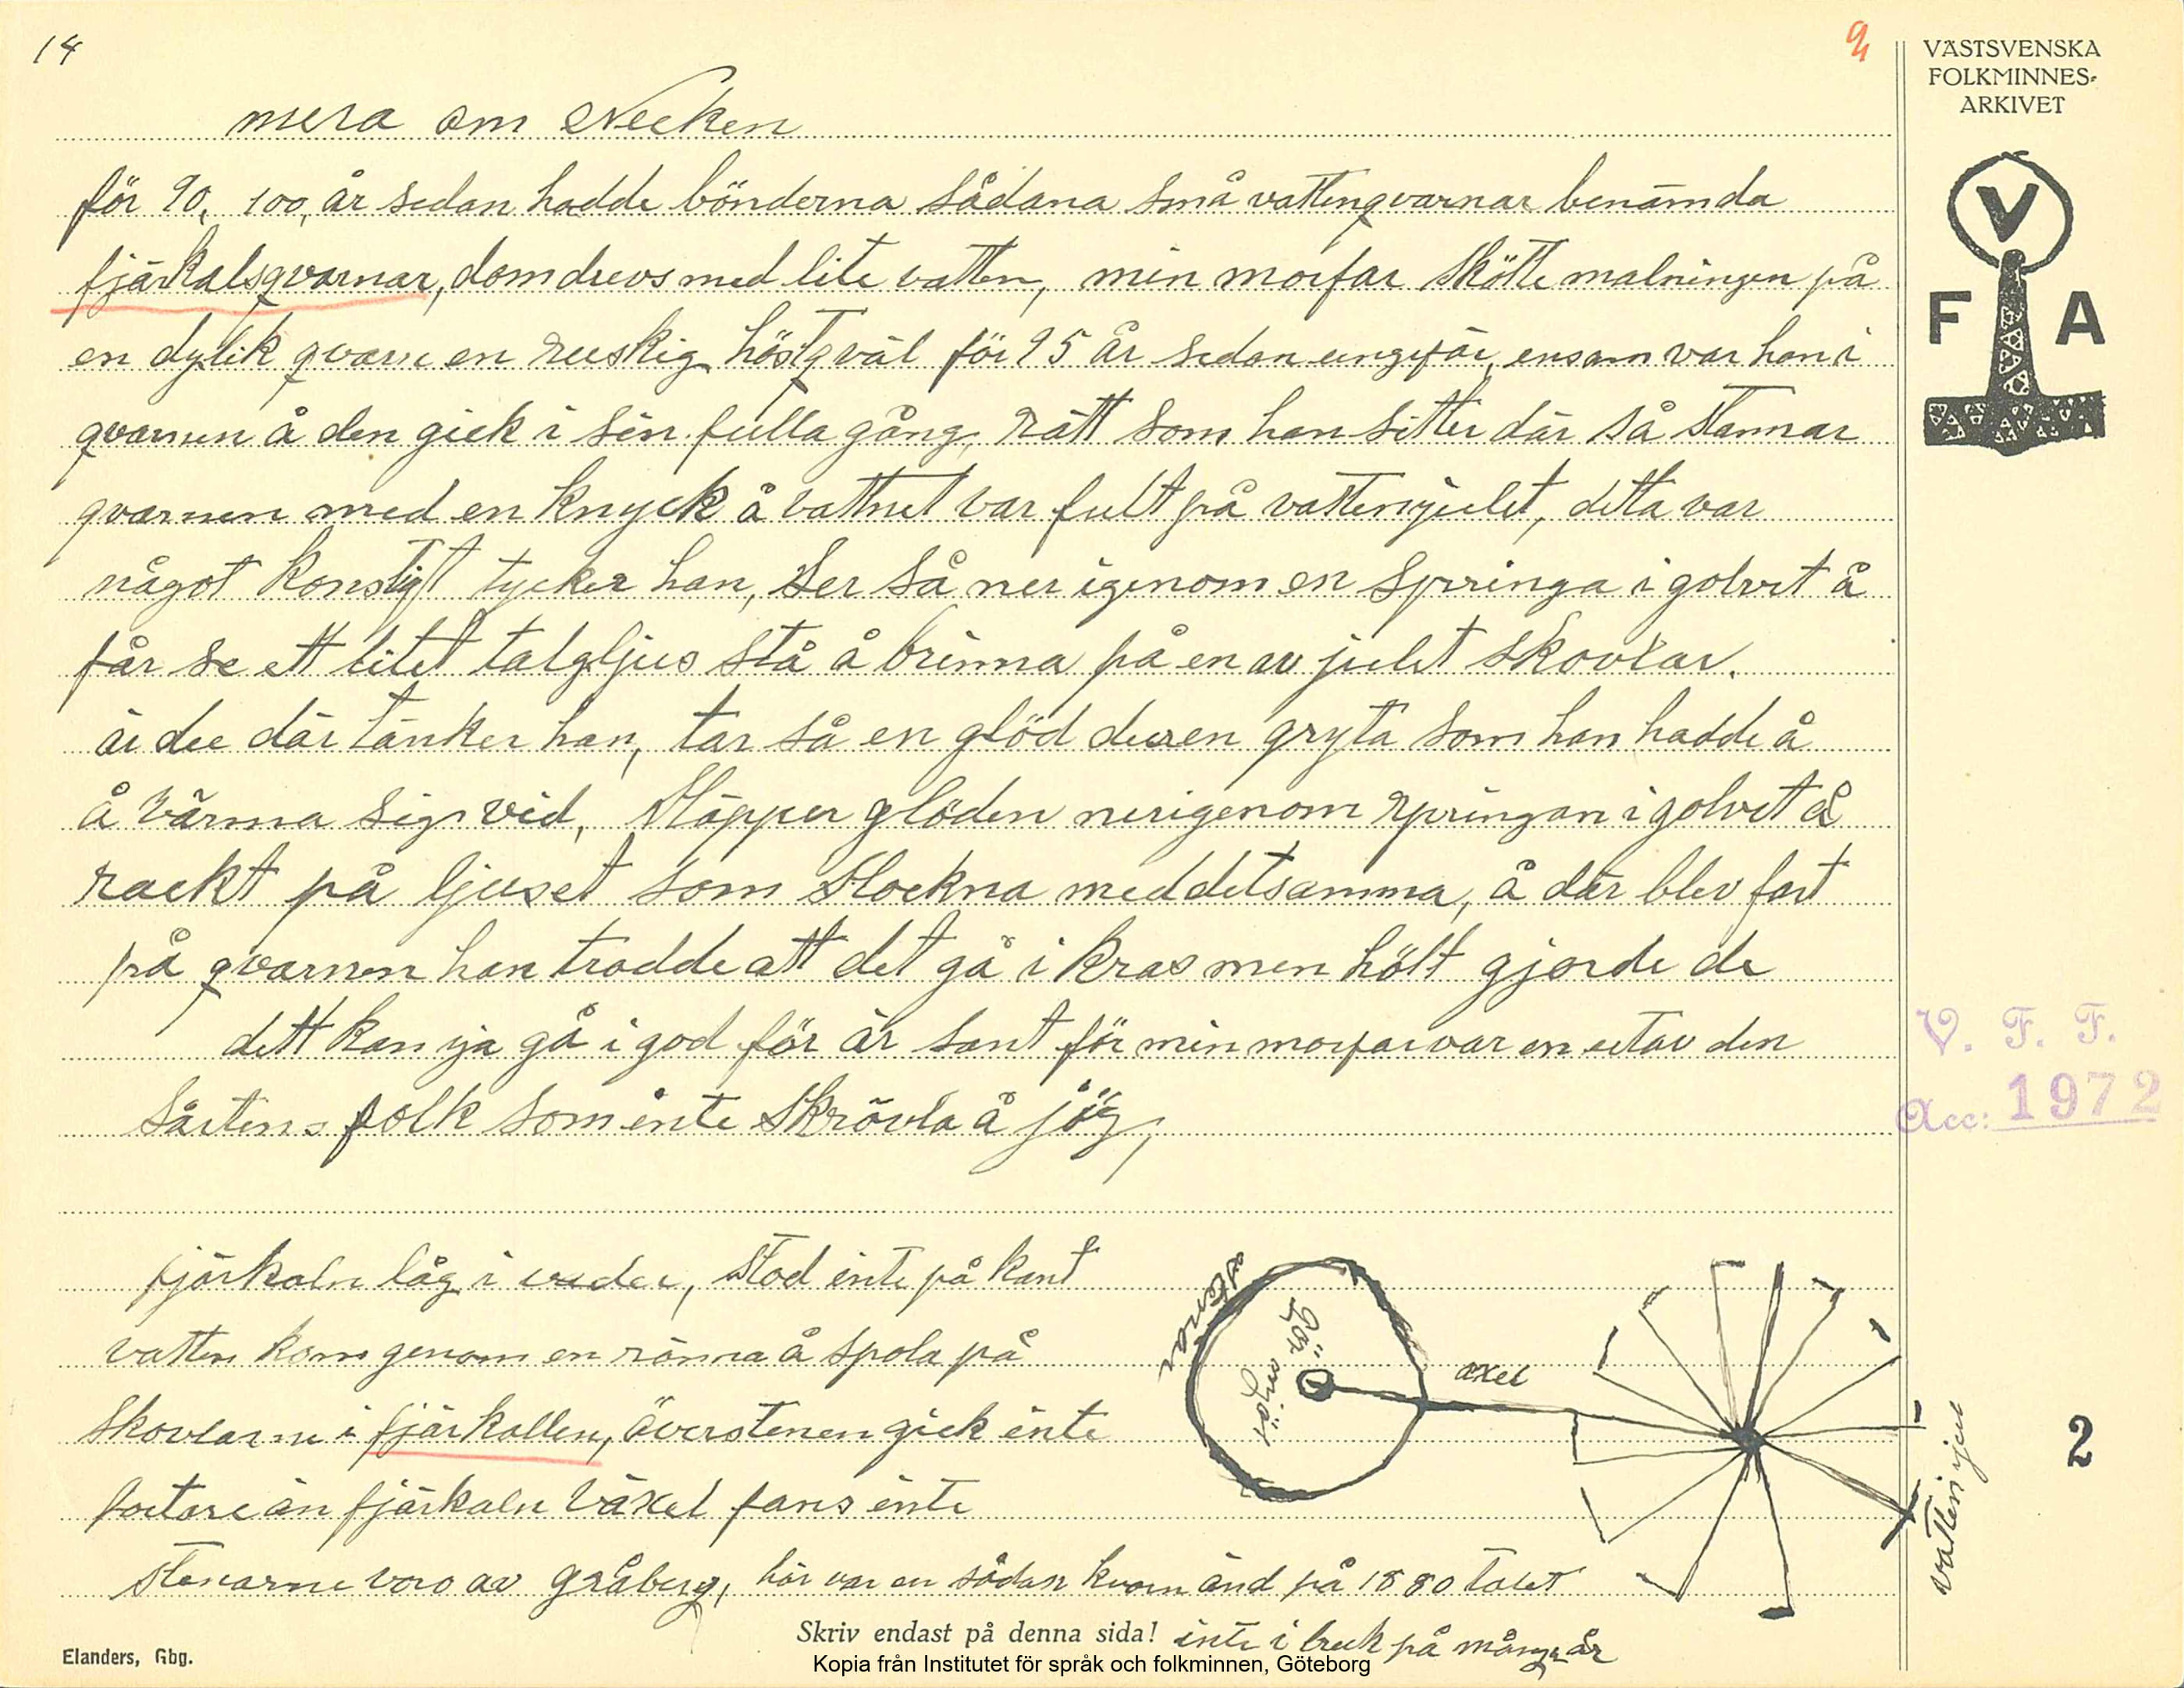 14
9
VÄSTSVENSKA
FOLKMINNES-
ARKIVET
V
F A
mera om Necken
för 90, 100, år sedan hadde bönderna sådana små vattenqvarnar benämda
fjärkalsqvarnar, dom drevs med lite vatten, min morfar skötte malningen på
en dylik qvarn en ruskig höstqväl för 95 år sedan ungefär, ensam var han i
qvarnen å den gick i sin fulla gång, rätt som han sitter där så stannar
qvarnen med en knyck å vattnet var fult på vattenjulet, detta var
något konstigt tycker han, ser så ner igenom en springa i golvet å
får se ett litet talgljus stå å brinna på en av julet skovlar.
är due där tänker han, tar så en glöd uren gryta som han hadde å
å värma sig vid, släpper glöden nerigenom springan i golvet å
rackt på ljuset som slockna meddetsamma, å där blev fart
på qvarnen han trodde att det gå i kras men hölt gjorde de
dett kan ja gå i god för är sant för min morfar var en utav den
sårtens folk som inte skrövla å jög,
fjärkaln låg i under, stod inte på kant
vatten kom genom en ränna å spola på
skovlarne i fjärkallen, överstenen gick inte
fortare än fjärkaln växel fans inte
stenarne voro av gråberg, här var en sådan kvarn änd på 1880 talet
inte i bruk på många år
stenar
för mjöl
axel
vattenjul
V. F. F.
Acc: 1972
2
Skriv endast på denna sida!
Elanders, Gbg.
Kopia från Institutet för språk och folkminnen, Göteborg